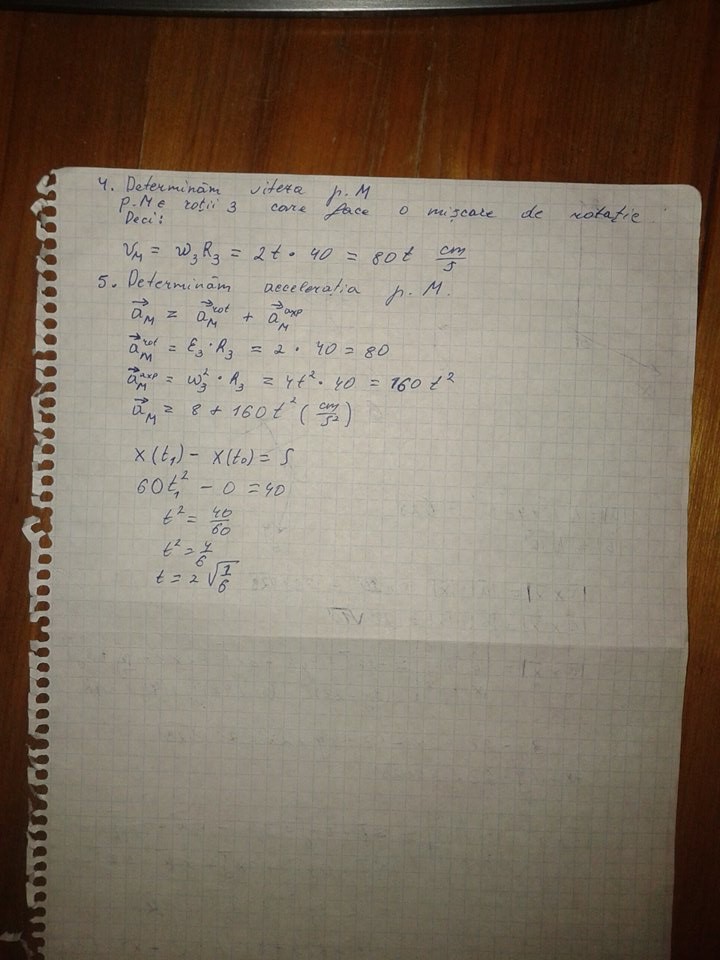 4. Determinăm viteza p. M
p. M e roții 3 care face o mișcare de rotație
Deci:
V_M = ω₃R₃ = 2t · 40 = 80t cm/s
5. Determinăm accelerația p. M.
a⃗_M = a⃗_M^rot + a⃗_M^axp
a⃗_M^rot = ε₃ · R₃ = 2 · 40 = 80
a⃗_M^axp = ω₃² · R₃ = 4t² · 40 = 160 t²
a⃗_M = 8 + 160 t² (cm/s²)
x(t₁) - x(t₀) = S
60t₁² - 0 = 40
t² = 40/60
t² = 4/6
t = 2 √(1/6)